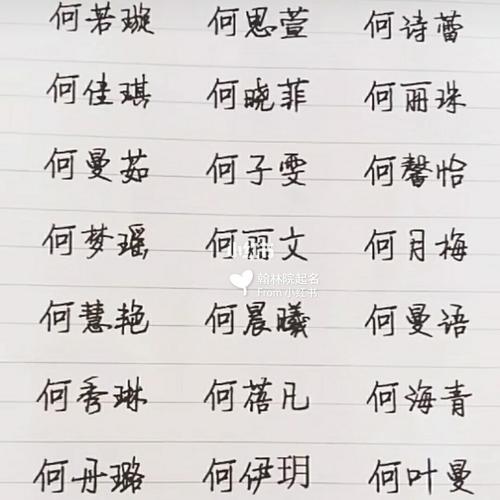 何若璇 何思萱 何诗蕾
何佳琪 何晓菲 何丽珠
何曼茹 何子雯 何馨怡
何梦瑶 何丽文 何月梅
翰林院起名
From 小红书
何慧艳 何晨曦 何曼语
何秀琳 何蓓凡 何海青
何丹璐 何伊玥 何叶曼